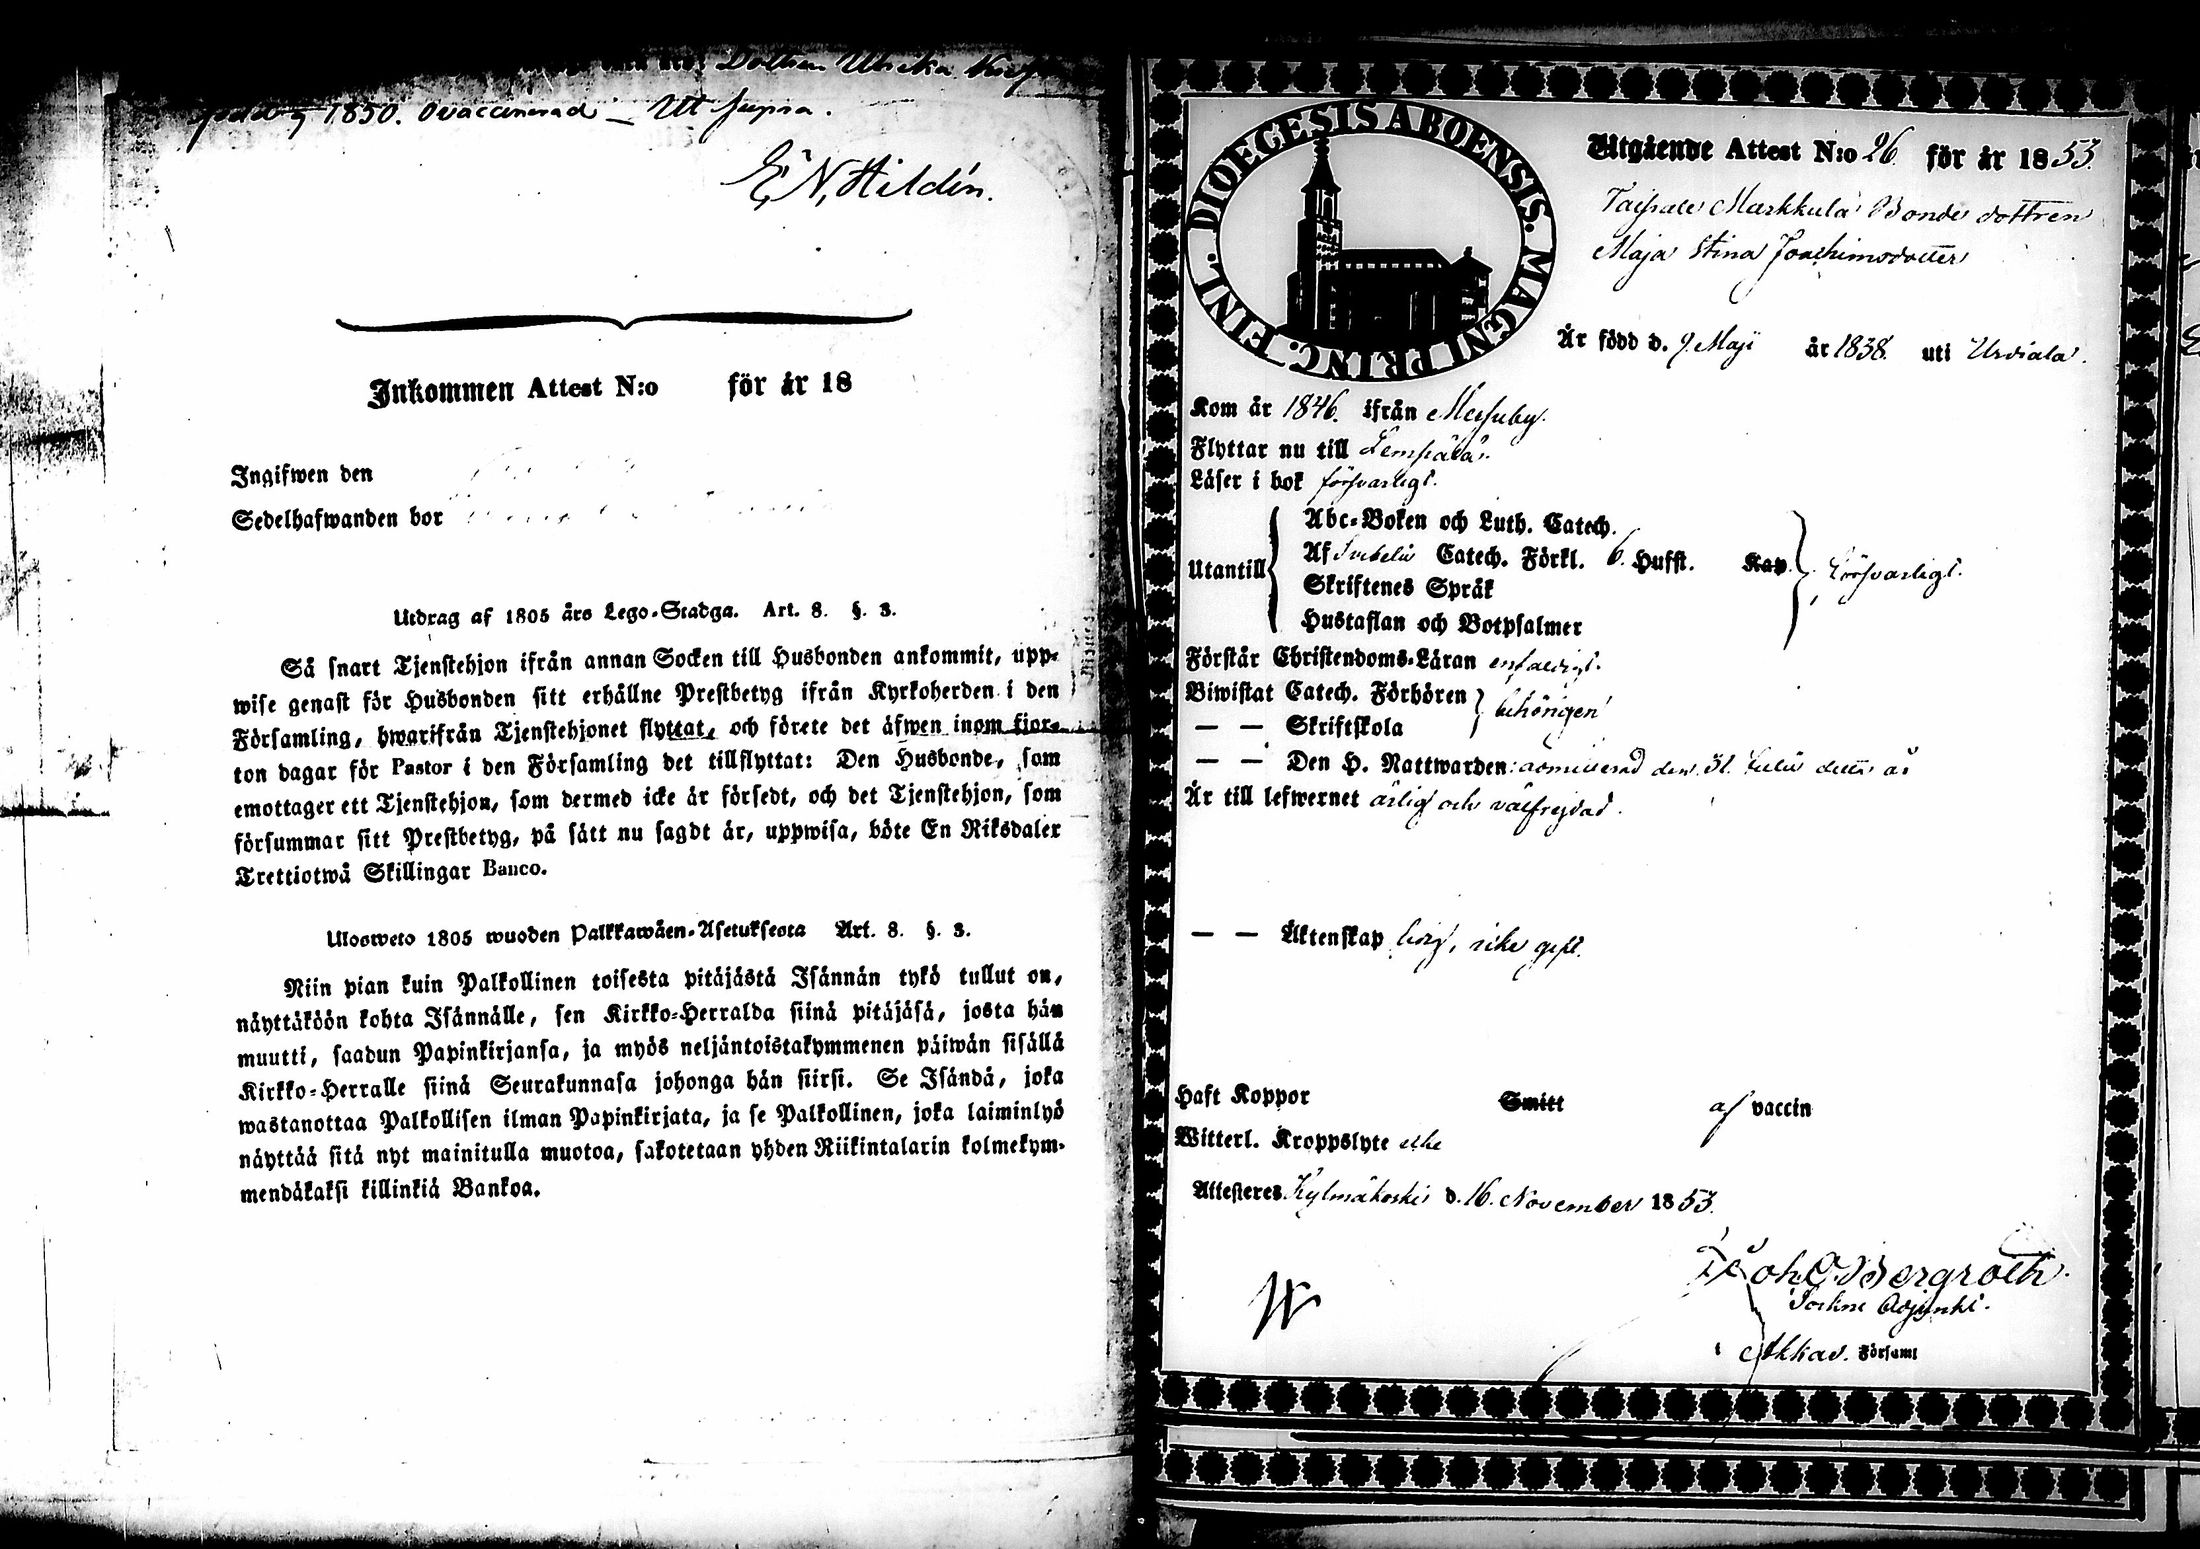 Dottren Ulrika
född 1850. Ovaccinerad — Ut supra.
E. N. Hildén.
Inkommen Attest N:o för år 18
Ingifwen den
Sedelhafwanden bor
Utdrag af 1805 års Lego-Stadga. Art. 8. §. 3.
Så snart Tjenstehjon ifrån annan Socken till Husbonden ankommit, upp-
wise genast för Husbonden sitt erhållne Prestbetyg ifrån Kyrkoherden i den
Församling, hwarifrån Tjenstehjonet flyttat, och förete det äfwen inom fjor-
ton dagar för Pastor i den Församling det tillflyttat: Den Husbonde, som
emottager ett Tjenstehjon, som dermed icke är försedt, och det Tjenstehjon, som
försummar sitt Prestbetyg, på sätt nu sagdt är, uppwisa, böte En Riksdaler
Trettiotwå Skillingar Banco.
Ulosweto 1805 wuoden Palkkawäen-Asetuksesta Art. 8. §. 3.
Niin pian kuin Palkollinen toisesta pitäjästä Isännän tykö tullut on,
näyttäköön kohta Isännälle, sen Kirkko-Herralda siinä pitäjäsä, josta hän
muutti, saadun Papinkirjansa, ja myös neljäntoistakymmenen päiwän sisällä
Kirkko-Herralle siinä Seurakunnasa johonga hän siirsi. Se Isändä, joka
wastanottaa Palkollisen ilman Papinkirjata, ja se Palkollinen, joka laiminlyö
näyttää sitä nyt mainitulla muotoa, sakotetaan yhden Riikintalarin kolmekym-
mendäkaksi killinkiä Bankoa.
DIOECESIS ABOENSIS. MAGNI PRINC. FINL.
Utgående Attest N:o 26. för år 1853.
Taipale Markkula Bonde dottren
Maja Stina Joachimsdotter
Är född d. 9. Maji år 1838. uti Urdiala.
Kom år 1846. ifrån Messuby.
Flyttar nu till Lempälä.
Läser i bok försvarligt.
Abc-Boken och Luth. Catech.
Utantill Af Svebelii Catech. Förkl. 6. Hufst. Kap. försvarligt.
Skriftenes Språk
Hustaflan och Botpsalmer
Förstår Christendoms-Läran enfaldigt.
Biwistat Catech. Förhören behörigen
— — Skriftskola
— — Den H. Nattwarden: admitterad den 31. Julii detta år
Är till lefwernet ärlig och välfrejdad.
— — Äktenskap ledig, icke gift.
Haft Koppor Smitt af vaccin
Witterl. Kroppslyte icke
Attesteres Kylmäkoski d. 16. November 1853.
Joh. G. Bergroth.
Sockne Adjunkt.
Akkas. Församl